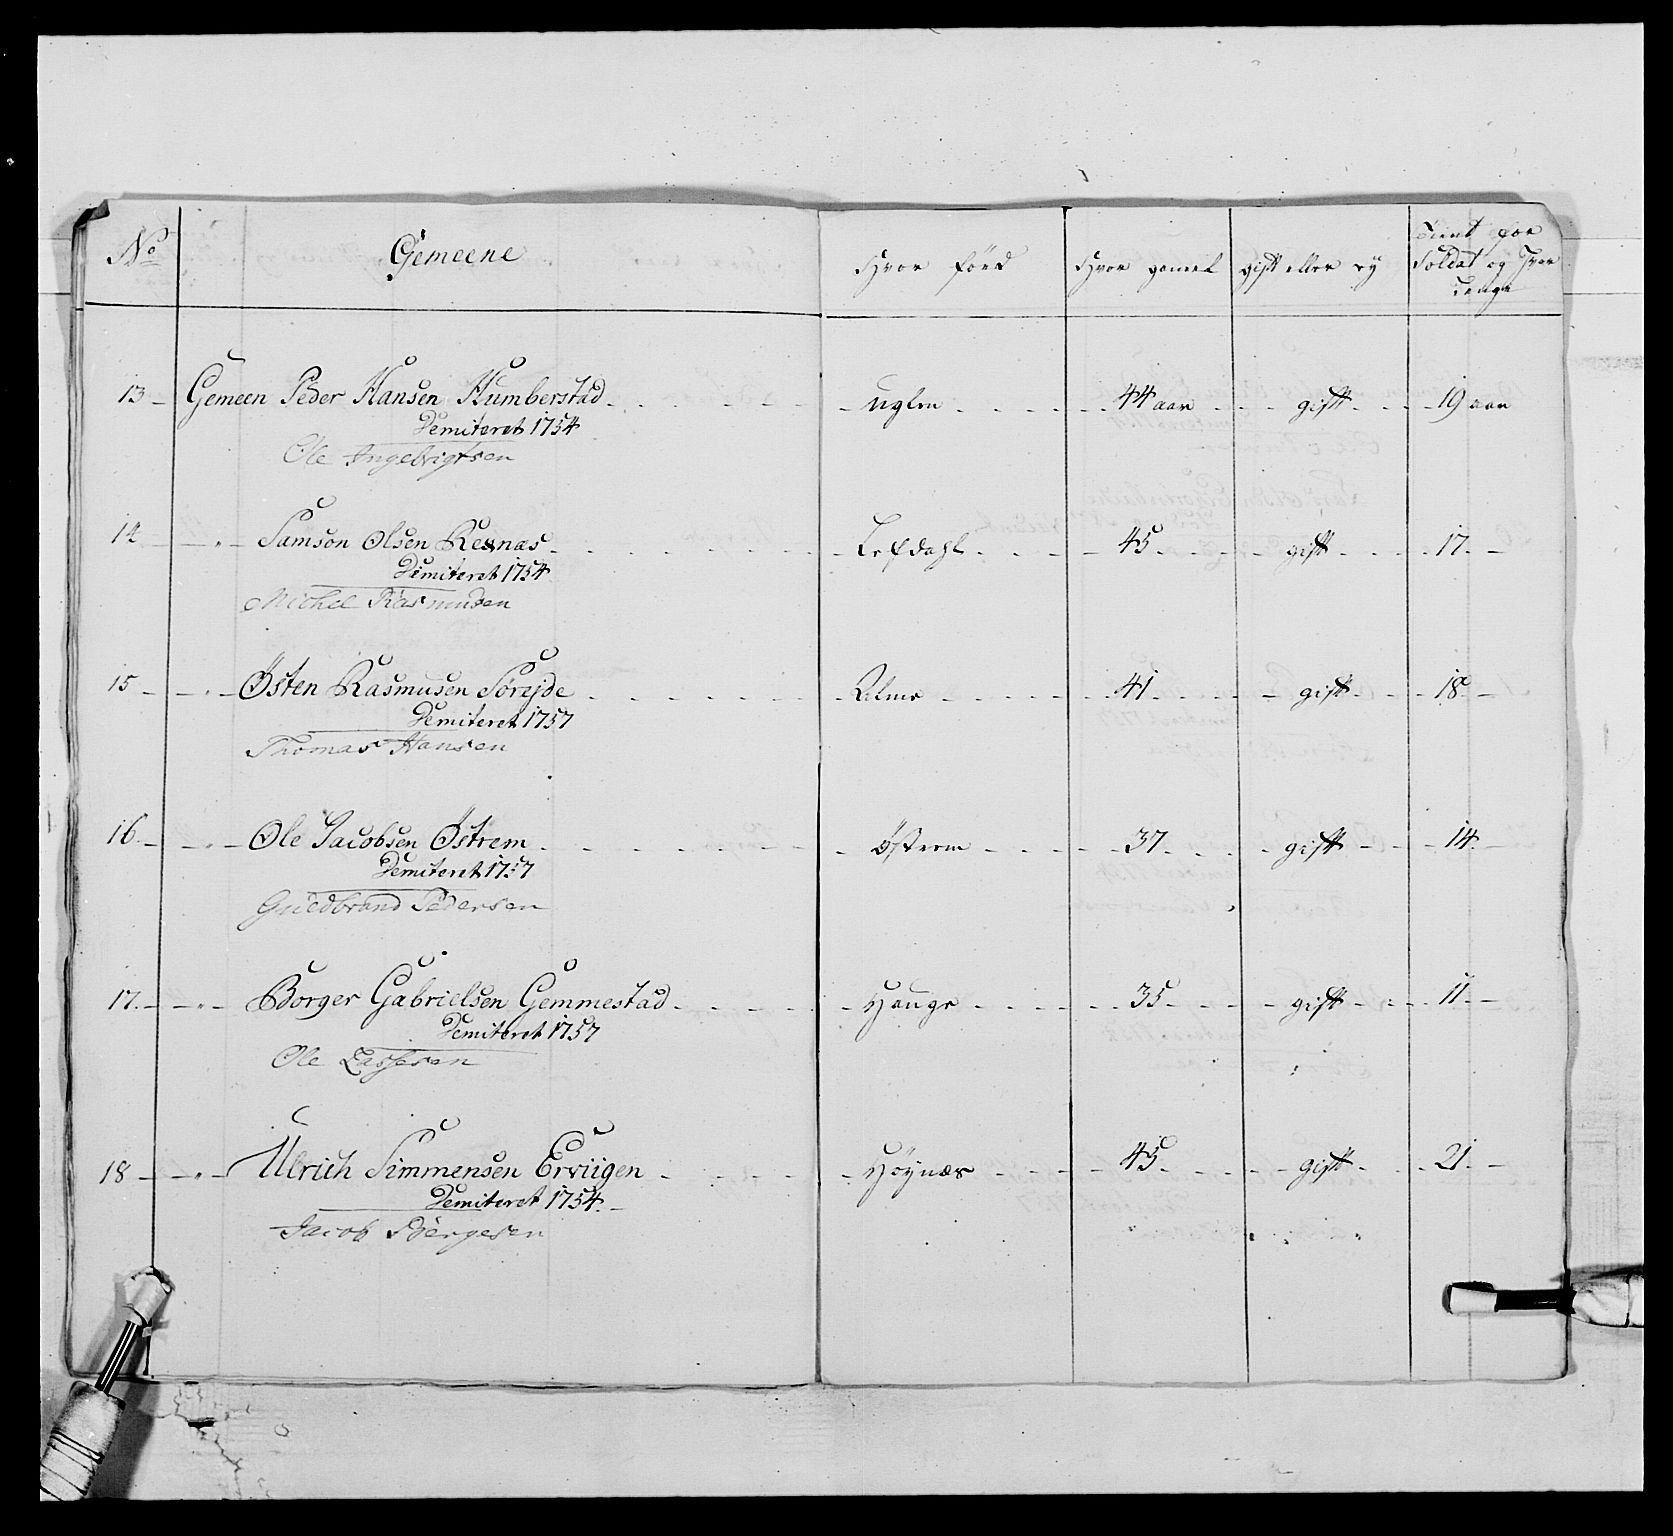 No Gemeene Hvor föed Hvor gamel gift eller ey Tient for
Soldat og Hvor
Lenge
13 Gemeen Peder Hansen Humberstad Uglen 44 aar gift 19 aar
Demiteret 1754
Ole Ingebrigtsen
14 " Samson Olsen Resnas Lefdahl 45 gift 17
Demiteret 1754
Michel Rasmusen
15 " Östen Rasmusen Sörejde Alme 41 gift 18
Demiteret 1757
Thomas Hansen
16 " Ole Jacobsen Östrem Östrem 37 gift 14
Demiteret 1757
Guedbrand Pedersen
17 " Borger Gabrielsen Gemmestad Hauge 35 gift 11
Demiteret 1757
Ole Lassesen
18 " Ulrich Simmensen Erviigen Höynæs 45 gift 21
Demiteret 1754
Jacob Börgesen